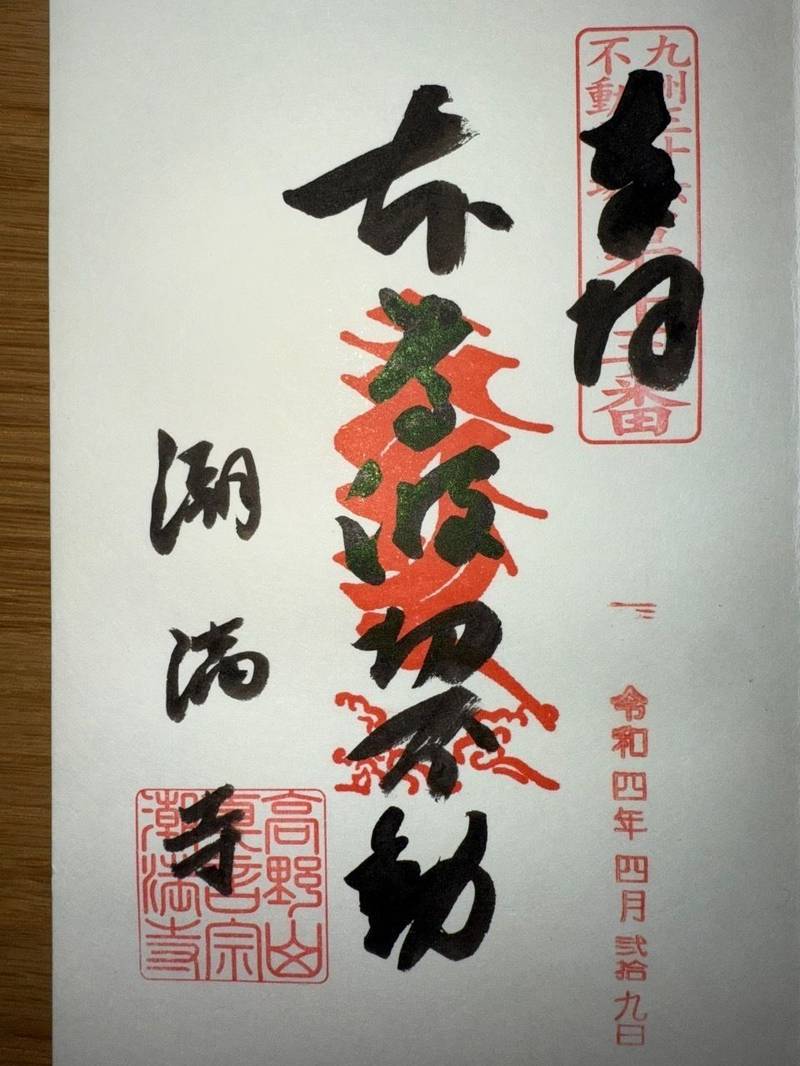 九州三十六
不動霊場
第廿三番
奉拝
令和四年四月弐拾九日
本尊波切不動
潮満寺
高野山
真言宗
潮満寺